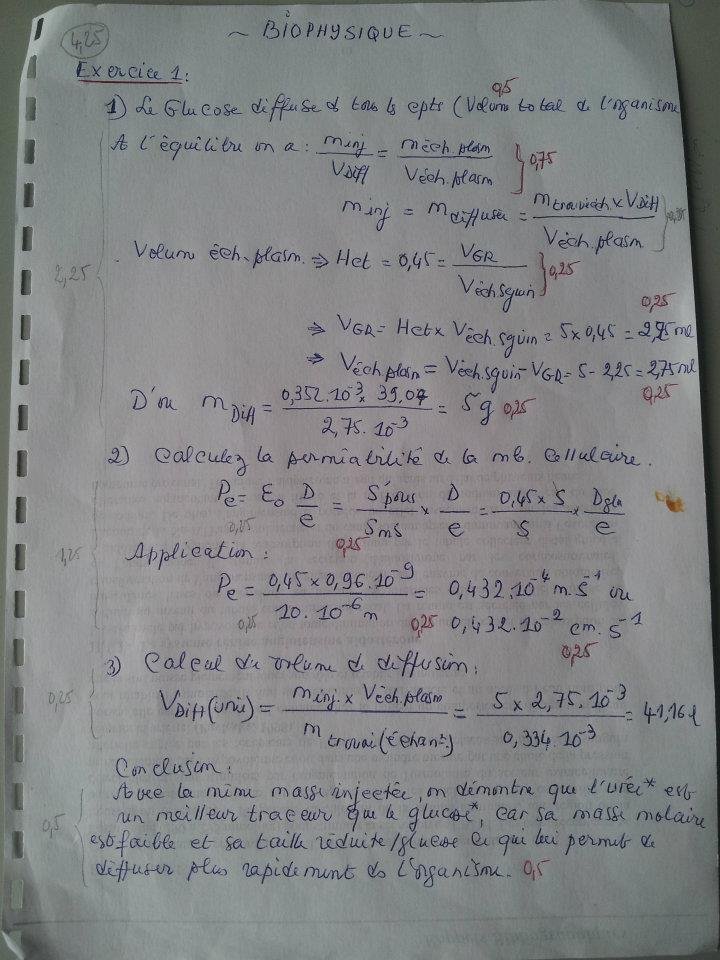 ~ BiOPHYSIQUE ~
4,25
Exercice 1:
0,5
1) Le Glucose diffuse ds tous ls cpts (Volume total de l'organisme
A l'équilibre on a : m inj / VDiff = m éch.plasm / V éch.plasm 0,75
m inj = m diffusée = m trouvéech. x VDiff / V éch.plasm
2,25
. Volum éch.plasm. ⇒ Het = 0,45 = VGR / Véchsguin 0,25
0,25
⇒ VGR = Het x Véch.sguin = 5 x 0,45 = 2,25 ml
⇒ Véch.plasm = Véch.sguin - VGR = 5 - 2,25 = 2,75 ml
0,25
D'où m Diff = 0,352.10⁻³ x 39,07 / 2,75.10⁻³ = 5g 0,25
2) Calculez la permiabilité de la mb. Cellulaire.
Pe = Ɛo D/e = S pous / S mb x D/e = 0,45 x S / S x Dglu / e
0,25
1,25
0,25
Application :
Pe = 0,45 x 0,96.10⁻⁹ / 10.10⁻⁶ m = 0,432.10⁻⁴ m.s⁻¹ ou
0,25 0,25 0,432.10⁻² cm.s⁻¹
0,25
3) Calcul du volume de diffusion :
0,25
VDiff (urée) = m inj. x Véch.plasm / m trouvé (échant.) = 5 x 2,75.10⁻³ / 0,334.10⁻³ = 41,16 l
Conclusion :
Avec la mime masse injectée, on démontre que l'urée* est
0,5
un meilleur traceur que le glucose*, car sa masse molaire
est faible et sa taille réduite/glucose ce qui lui permet de
diffuser plus rapidement ds l'organisme. 0,5